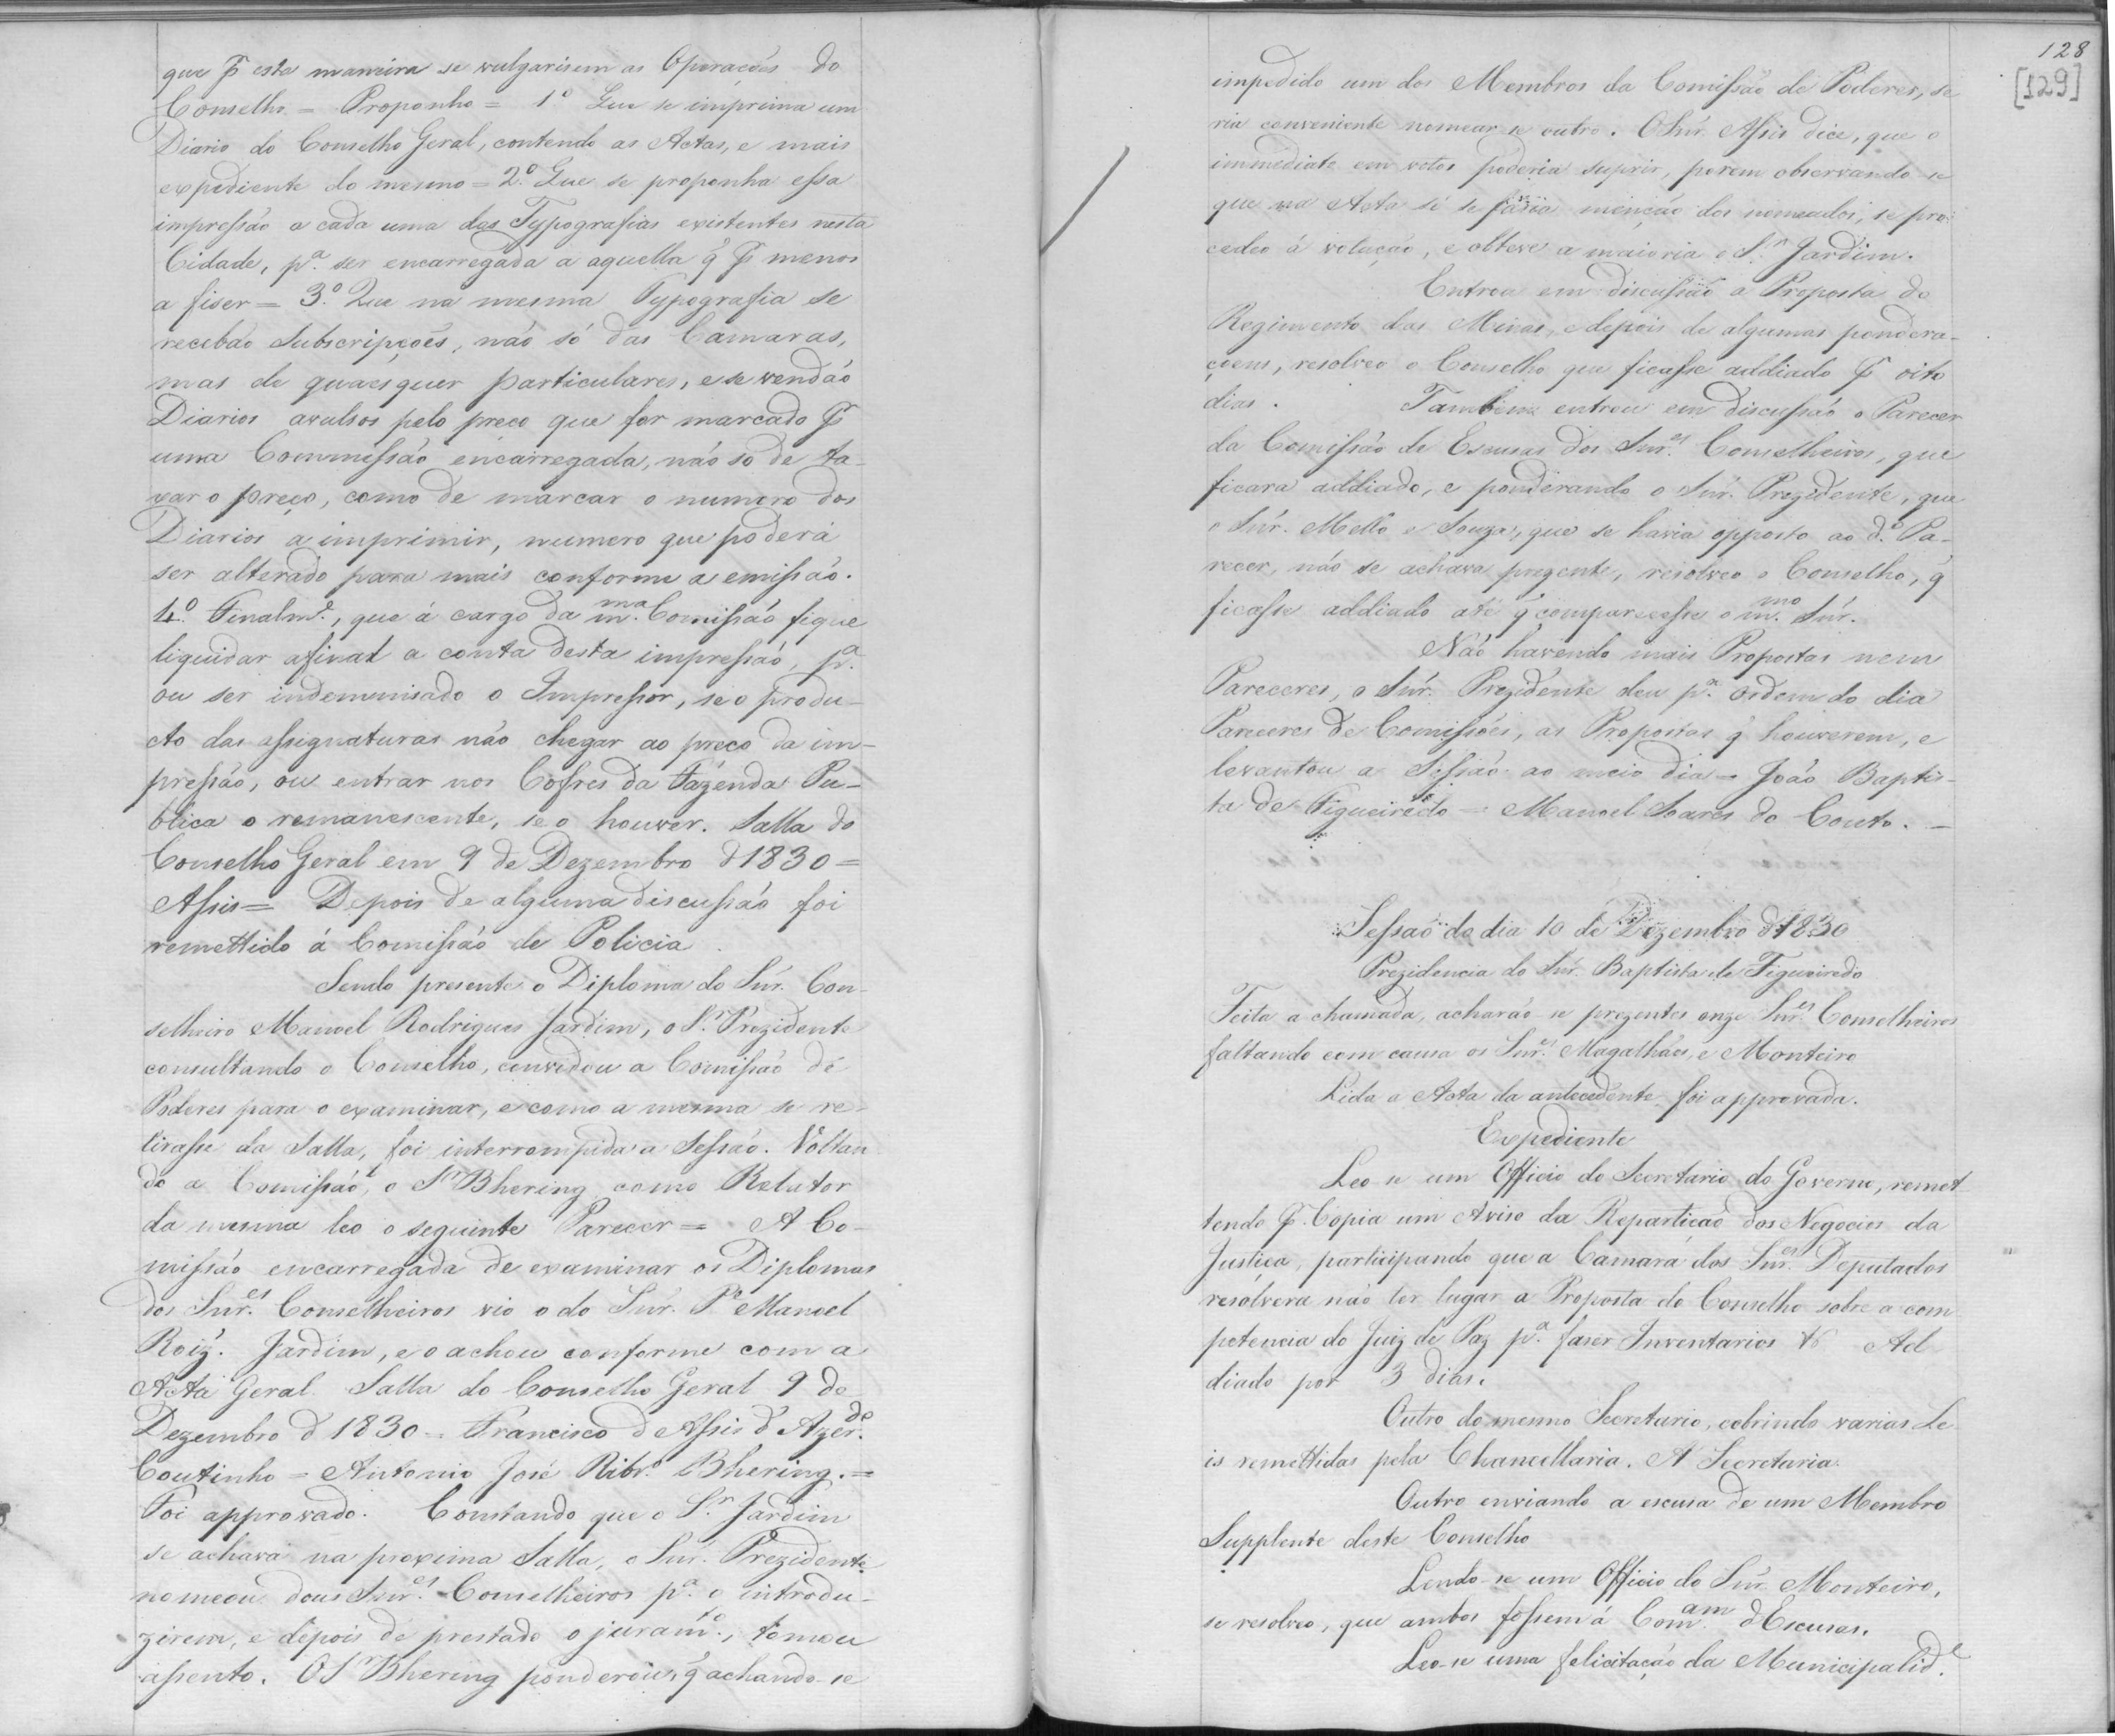 que p este maneira se vulgarisem as Operações do
Conselho = Proponho = 1º Que se imprima um
Diario do Conselho Geral, contendo as Actas, e mais
expediente do mesmo = 2º Que se proponha essa
impressão a cada uma das Typografias existentes nesta
Cidade, pª ser encarregada a aquella q̃ p menos
a fiser = 3º Que na mesma Typografia se
recebão Subscripções, não só das Camaras,
mas de quaesquer particulares, e se vendão
Diarios avulsos pelo preço que for marcado p
uma Commissão encarregada, não so de ta-
xar o preço, como de marcar o numero dos
Diarios a imprimir, numero que poderá
ser alterado para mais conforme a emissão.
4º Finalmᵉ, que á cargo da mᵐᵃ Comissão fique
liquidar afinal a conta desta impressão, pª
ou ser indemnisado o Impressor, se o produ-
cto das assignaturas não chegar ao preço da im-
pressão, ou entrar nos Cofres da Fazenda Pu-
blica o remanescente, se o houver. Salla do
Conselho Geral em 9 de Dezembro d 1830 =
Assis = Depois de alguma discussão foi
remettido á Comissão de Policia.
Sendo presente o Diploma do Snr. Con-
selheiro Manoel Rodrigues Jardim, o Sʳ Prezidente
consultando o Conselho, convidou a Comissão de
Poderes para o examinar, e como a mesma se re-
tirasse da Salla, foi interrompida a Sessão. Voltan
do a Comissão, o Sʳ Bhering como Relator
da mesma leo o seguinte Parecer = A Co-
missão encarregada de examinar os Diplomas
dos Snrᵉˢ Conselheiros vio o do Snr. Pᵉ Manoel
Roiz. Jardim, e o achou conforme com a
Acta Geral. Salla do Conselho Geral 9 de
Dezembro d 1830 = Francisco d Assis d' Azerᵈᵒ
Coutinho = Antonio José Ribrº Bhering. =
Foi approvado. Constando que o Sʳ Jardim
se achava na proxima Salla, o Snr. Prezidente
nomeou dous Snrᵉˢ Conselheiros pª o introdu-
zirem, e depois de prestado o juramᵗᵒ, tomou
assento. O Sʳ Bhering ponderou, q̃ achando-se
128
[129]
impedido um dos Membros da Comissão de Poderes, se
ria conveniente nomear se outro. O Snr. Assis dice, que o
immediato em votos poderia suprir, porem observando-se
que na Acta só se fazia menção dos nomeados, se pro
cedeo á votação, e obteve a maioria o Sʳ Jardim.
Entrou em discussão a Proposta do
Regimento das Minas, e depois de algumas pondera-
çoens, resolveo o Conselho que ficasse addiado p oito
dias. Tambem entrou em discussão o Parecer
da Comissão de Escusas dos Snrᵉˢ Conselheiros, que
ficara addiado, e ponderando o Snr. Prezidente, que
o Snr. Mello e Souza, que se havia opposto ao dº Pa-
recer, não se achava prezente, resolveo o Conselho, q̃
ficasse addiado até q̃ comparecesse o mᵐᵒ Snr.
Não havendo mais Propostas nem
Pareceres, o Snr. Prezidente deu pª Ordem do dia
Pareceres de Comissões, as Propostas q̃ houverem, e
levantou a Sessão ao meio dia = João Baptis-
ta de Figueiredo = Manoel Soares do Couto. -
Sessão do dia 10 de Dezembro d 1830
Prezidencia do Snr. Baptista de Figueiredo
Feita a chamada, acharão-se prezentes onze Snrᵉˢ Conselheiros
faltando com causa os Snrᵉˢ Magalhães, e Monteiro
Lida a Acta da antecedente foi approvada.
Expediente
Leo-se um Officio do Secretario do Governo, remet-
tendo p Copia um Aviso da Repartição dos Negocios da
Justiça, participando que a Camara dos Snrᵉˢ Deputados
resolvera não ter lugar a Proposta do Conselho sobre a com
potencia do Juiz de Paz pª faser Inventarios &. Ad-
diado por 3 dias.
Outro do mesmo Secretario, cobrindo varias Le-
is remettidas pela Chancellaria. A' Secretaria.
Outro enviando a escusa de um Membro
Supplente deste Conselho
Lendo-se um Officio do Snr. Monteiro,
se resolveo, que ambos fossem á Comᵃᵐ d'Escusas.
Leo-se uma felicitação da Municipalidᵉ